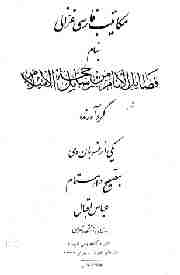 مکاتیب فارسی غزالی
بنام
فضایل الانام من رسائل حجة الاسلام
گردآورنده
یکی از منسوبان وی
بتصحیح و اهتمام
عباس اقبال